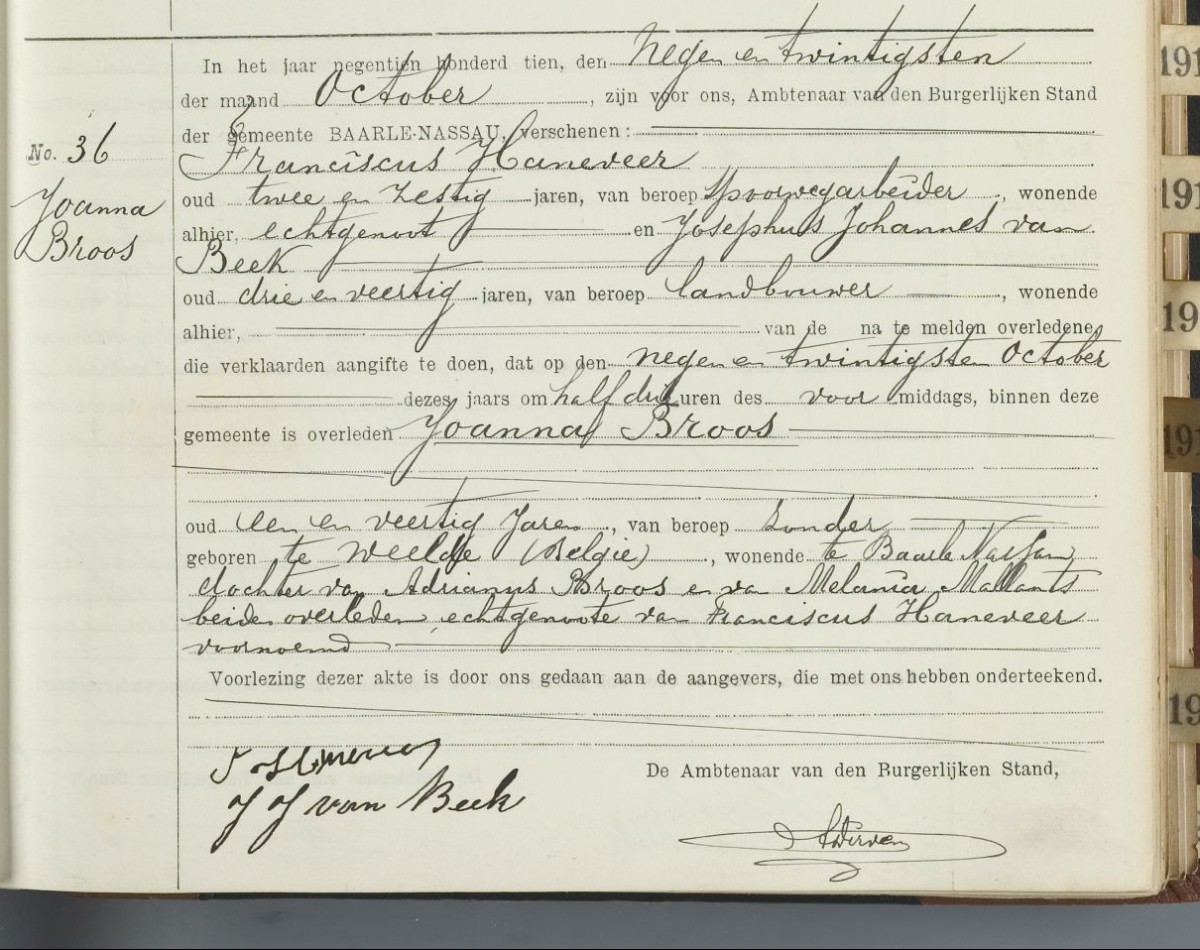 In het jaar negentien honderd tien, den negen en twintigsten
der maand October, zijn voor ons, Ambtenaar van den Burgerlijken Stand
der gemeente BAARLE-NASSAU, verschenen:
No. 36
Franciscus Haneveer
Joanna
Broos
oud twee en zestig jaren, van beroep Spoorwegarbeider, wonende
alhier, echtgenoot en Josephus Johannes van
Beek
oud drie en veertig jaren, van beroep landbouwer, wonende
alhier, van de na te melden overledene,
die verklaarden aangifte te doen, dat op den negen en twintigsten October
dezes jaars om half drie uren des voormiddags, binnen deze
gemeente is overleden Joanna Broos
oud een en veertig Jaren, van beroep zonder
geboren te Weelde (Belgie), wonende te Baarle Nassau
dochter van Adrianus Broos en van Melania Mallants
beiden overleden, echtgenoote van Franciscus Haneveer
voornoemd
Voorlezing dezer akte is door ons gedaan aan de aangevers, die met ons hebben onderteekend.
De Ambtenaar van den Burgerlijken Stand,
J J van Beek
191
191
19
191
19